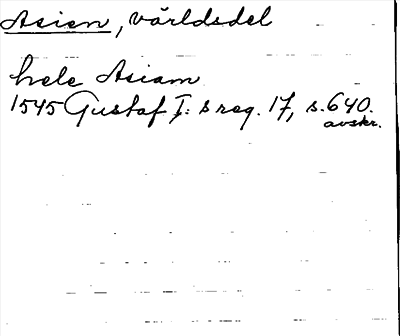 Asien, världsdel
hele Asiam
1545 Gustaf I:s reg. 17, s. 640.
avskr.